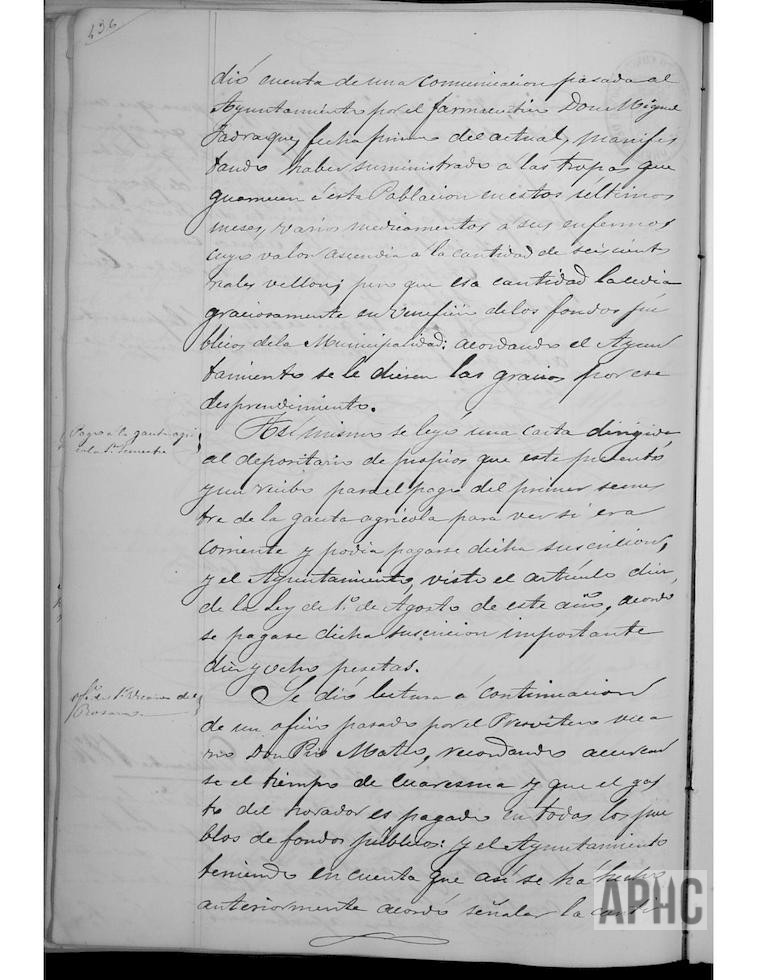 436
dió cuenta de una comunicacion pasada al
Ayuntamiento por el farmaceutico Don Miguel
Jadraque, fecha primero del actual, manifes
tando haber suministrado a las tropas que
guarnecen á esta Poblacion en estos últimos
meses, varios medicamentos a sus enfermos
cuyo valor ascendia á la cantidad de seiscientos
reales vellon; pero que esa cantidad la cedia
graciosamente en veneficio de los fondos pú
blicos de la Municipalidad: acordando el Ayun
tamiento se le diesen las gracias por ese
desprendimiento.
Pago a la gaceta agri
cola 1er semestre
Asi mismo se leyó una carta dirigida
al depositario de propios que este presentó
y un recibo para el pago del primer semes
tre de la gaceta agricola para ver si era
corriente y podia pagarse dicha suscricion,
y el Ayuntamiento, visto el artículo diez,
de la Ley de 1º de Agosto de este año, acordó
se pagase dicha suscricion importante
diez y ocho pesetas.
del
Rosario
Se dió lectura á continuacion
de un oficio pasado por el Presvitero vica
rio Don Pio Matto, recordando acercar
se el tiempo de Cuaresma y que el gas
to del horador es pagado en todos los pue
blos de fondos públicos: y el Ayuntamiento
teniendo en cuenta que asi se há hecho
anteriormente acordó señalar la canti
APHC